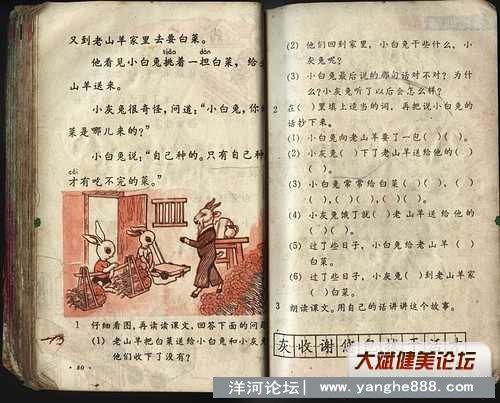 又到老山羊家里去要白菜。
tiāo dàn
他看见小白兔挑着一担白菜，给
山羊送来。
小灰兔很奇怪，问道：“小白兔，你
菜是哪儿来的？”
小白兔说：“自己种的。只有自己
cái
才有吃不完的菜。”
1 仔细看图，再读读课文，回答下面的问
(1) 老山羊把白菜送给小白兔和小灰
他们收下了没有？
·80·
(2) 他们回到家里，小白兔干些什么，小
灰兔呢？
(3) 小白兔最后说的那句话对不对？为什
么？小灰兔听了以后会怎么样？
2 在( )里填上适当的词，再把说小白兔的
话抄下来。
(1) 小白兔向老山羊要了一包( )( )。
(2) 小灰兔( )下了老山羊送给他的( )
( )。
(3) 小白兔常常给白菜( )( )，( )
( )，( )( )，( )( )。
(4) 小灰兔饿了就( )老山羊送给他的
( )( )。
(5) 过了些日子，小白兔给老山羊( )( )
白菜。
(6) 过了些日子，小灰兔( )到老山羊家
( )白菜。
3 朗读课文。用自己的话讲讲这个故事。
灰 收 谢
大斌健美论坛
洋河论坛| www.yanghe888.com